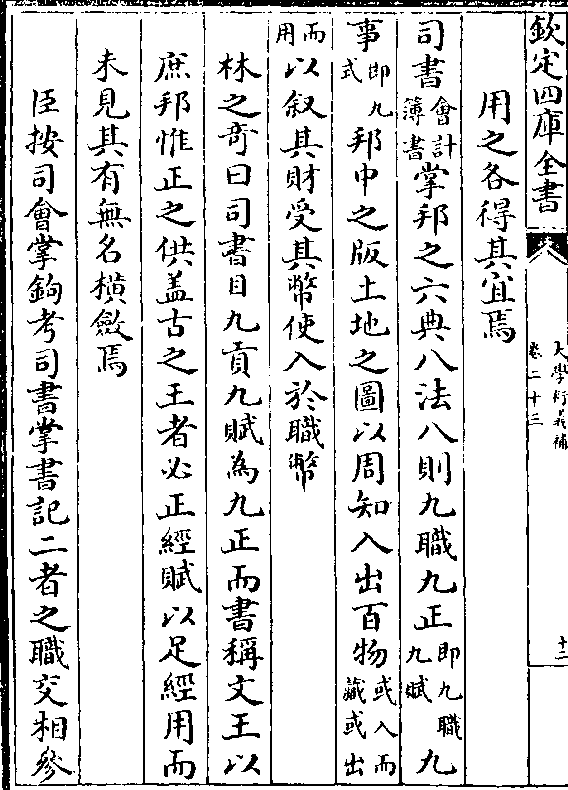 欽定四庫全書
大學衍義補
卷二十三
十二
用之各得其宜焉
司書會計簿書掌邦之六典八法八則九職九正即九職九賦九
事即九式邦中之版土地之圖以周知入出百物或入而藏或出
而用以叙其財受其幣使入於職幣
林之竒曰司書目九貢九賦為九正而書稱文王以
庶邦惟正之供盖古之王者必正經賦以足經用而
未見其有無名橫斂焉
臣按司會掌鉤考司書掌書記二者之職交相參